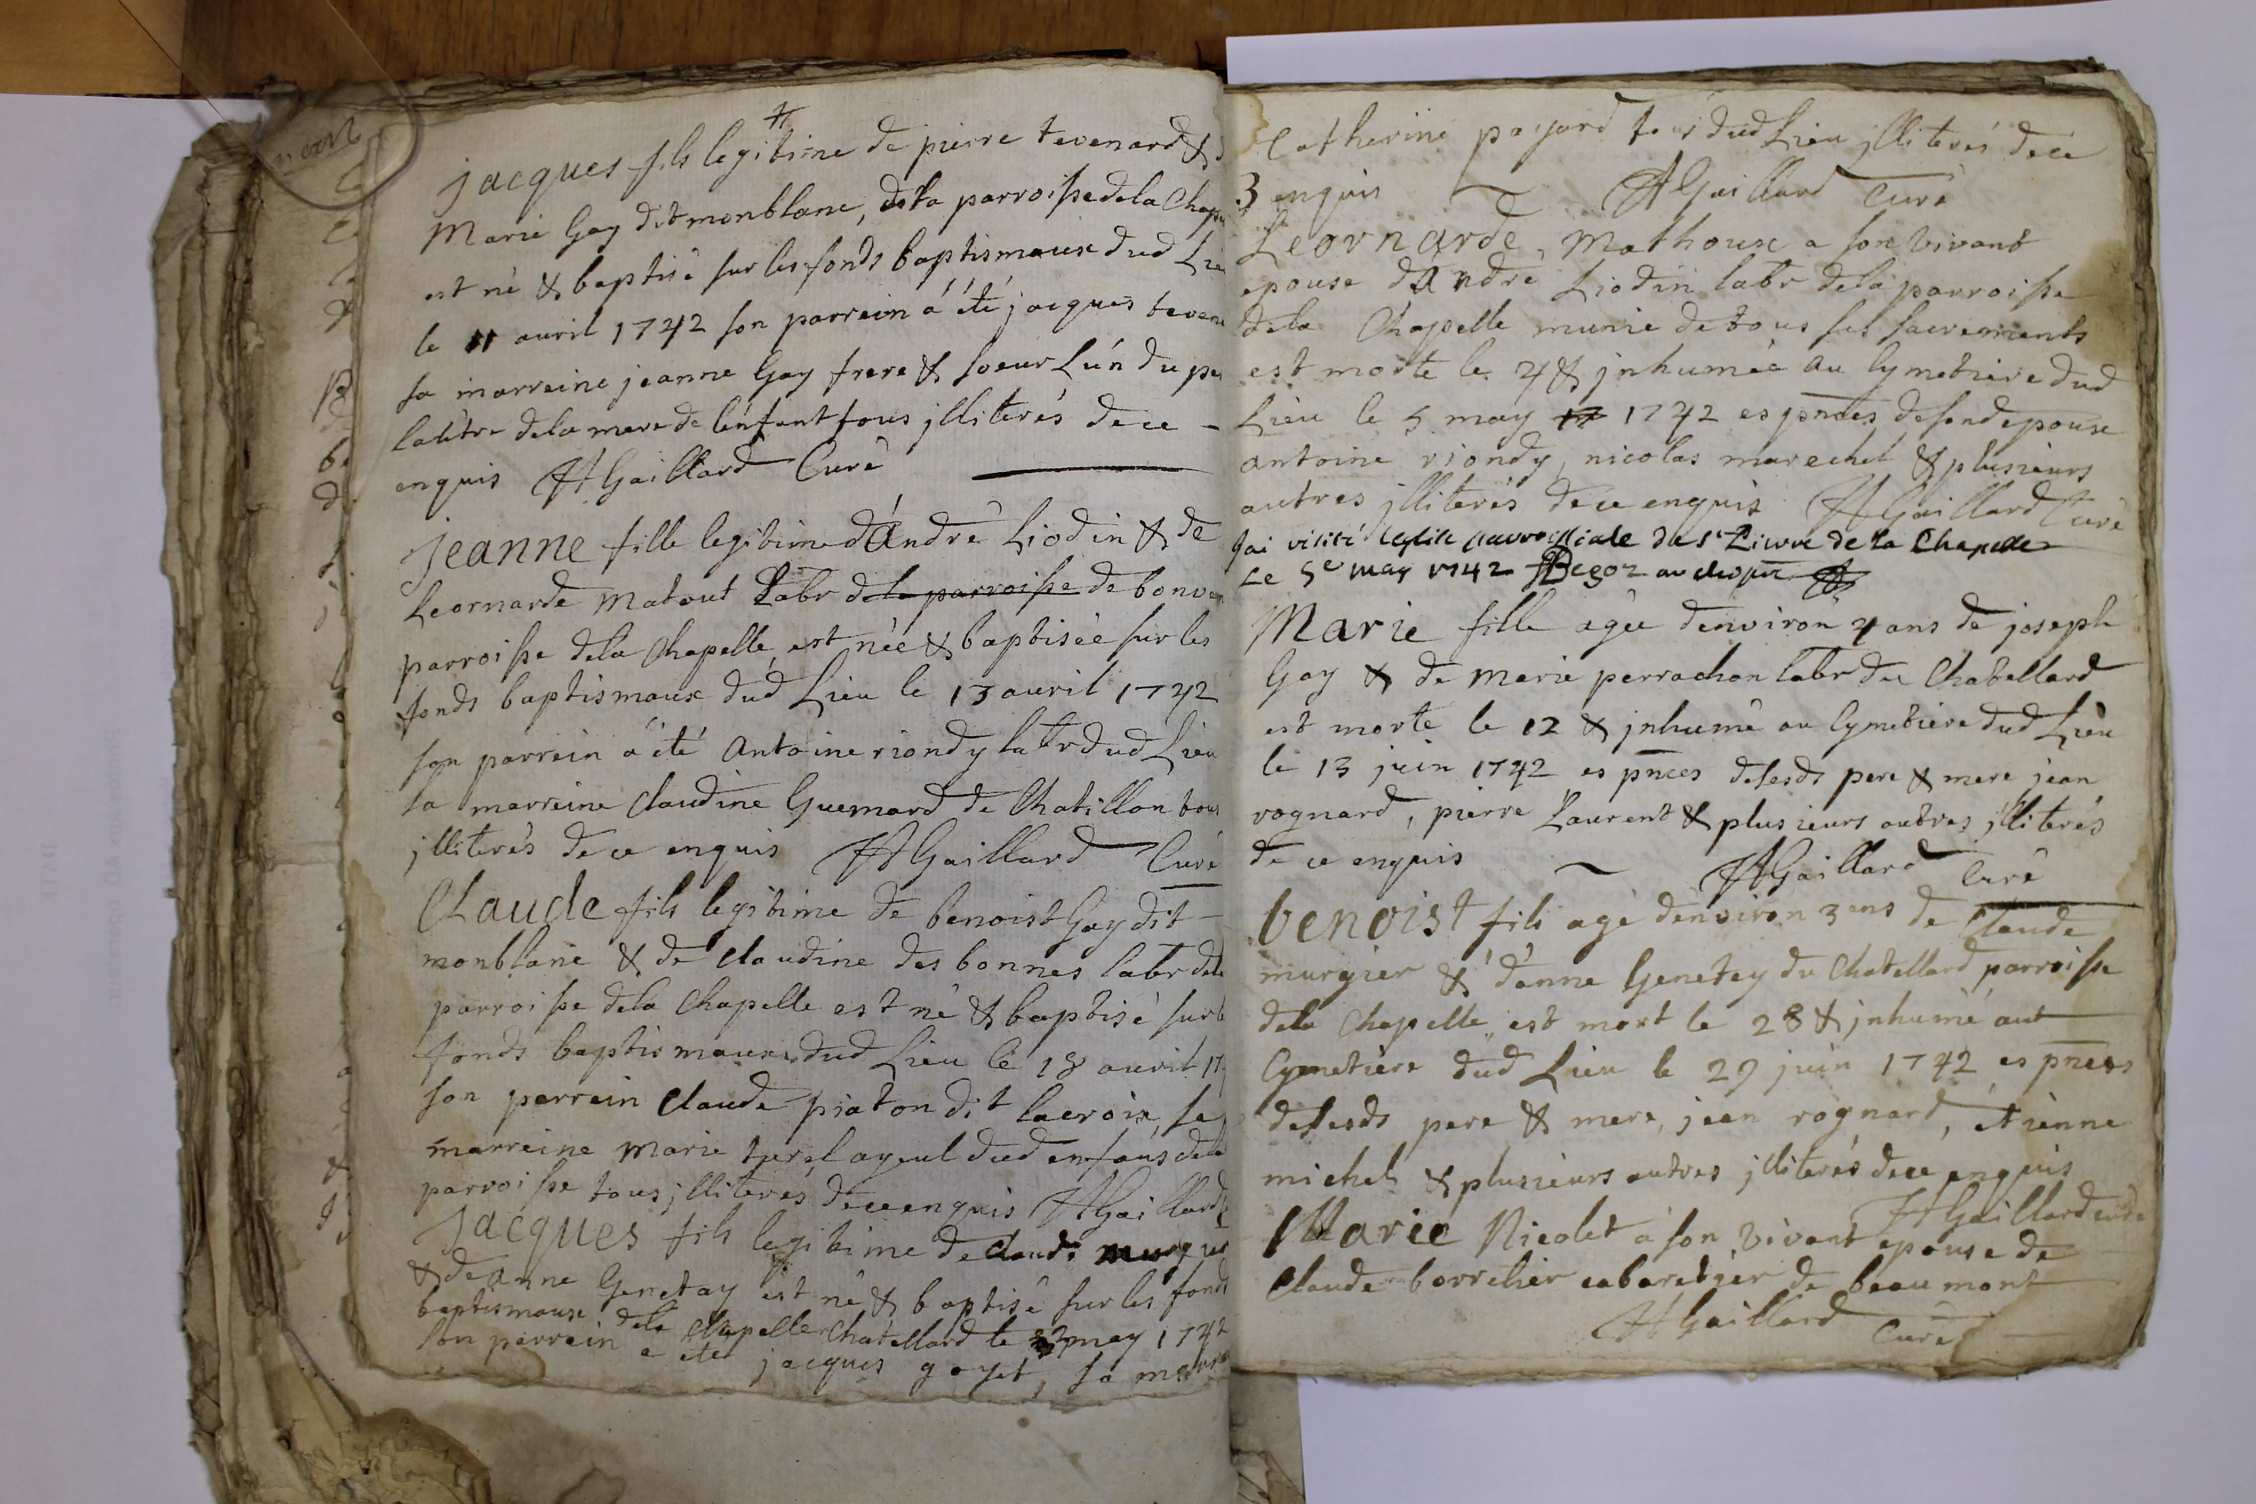 jacques fils legitime de pierre tevenard &
Marie Gay dit monblanc, dela parroisse dela Chape
est né & baptisé sur les fonds baptismaux dud Lieu
le 11 avril 1742 son parrein á été jacques teven
sa marreine jeanne Gay frere & soeur L'un du pe
l'autre dela mere de l'enfant tous jlliterés de ce
enquis HGaillard Curé
Jeanne fille legitime d'Andrê Liodin & de
Leornarde Matout Labr dela parroisse de bonv
parroisse dela Chapelle est née & baptisée sur les
fonds baptismaux dud Lieu le 13 avril 1742
son parrein a été Antoine riondy labr dud Lieu
sa marreine Claudine Guemard de Chatillon tous
jlliterés de ce enquis HGaillard Curé
Claude fils legitime de benoist Gay dit
monblanc & de Claudine des bonnes labr dela
parroisse dela Chapelle est né & baptisé sur le
fonds baptismaux dud Lieu le 18 avril 17
son parrein Claude piaton dit lacroix, sa
marreine Marie turel ayeul dud enfans dela
parroisse tous jlliterés de ce enquis HGaillard
Jacques fils legitime de Claude murgier
& de anne Genetay est né & baptisé sur les fonds
baptismaux dela Chapelle Chatellard le 3 may 1742
son parrein a eté jacques goyet, sa marre
Catherine payard tous dud Lieu jlliterés de ce
3 enquis HGaillard Curé
Leornarde Mathoux a son vivant
epouse d'Andrê Liodin labr dela parroisse
dela Chapelle munie de tous ses sacrements
est morte le 4 & jnhumée au Cymetiere dud
Lieu le 5 may 17 1742 es pnces desond epoux
antoine riondy, nicolas marechel & plusieurs
autres jlliterés de ce enquis HGaillard Curé
Jai visité leglise parroissiale de St Pierre de la Chapelle
Le 5e may 1742 Begoz archiptre
Marie fille agée d'environ 4 ans de joseph
Gay & de Marie perrachon labr du Chatellard
est morte le 12 & jnhumé au Cymetiere dud Lieu
le 13 juin 1742 es pnces desesds pere & mere jean
rognard, pierre Laurent & plusieurs autres jlliterés
de ce enquis HGaillard Curé
benoist fils agé d'environ 3 ans de Claude
murgier & d'anne Genetey du Chatellard parroisse
dela Chapelle est mort le 28 & jnhumé aut
Cymetiere dud Lieu le 29 juin 1742 es pnces
desesds pere & mere, jean rognard, etienne
michel & plusieurs autres jlliterés de ce enquis
HGaillard curé
Marie Nicolet á son vivant epouse de
Claude borrelier cabaretier de beaumont
HGaillard Curé